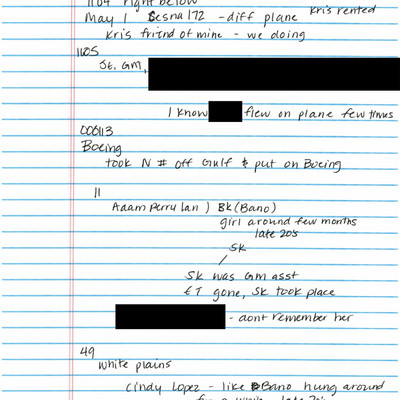 1104 right below
May 1 Cesna 172 - diff plane Kris rented
Kris friend of mine - we doing
1105
JE, GM,
I know flew on plane few times
000113
Boeing
took N # off Gulf & put on Boeing
11
Adam Perry Lan ) BK (Bano)
girl around few months
late 20's
SK
SK was GM asst
ET gone, SK took place
- dont remember her
49
White plains
Cindy Lopez - like Bano hung around
for a while late 20's